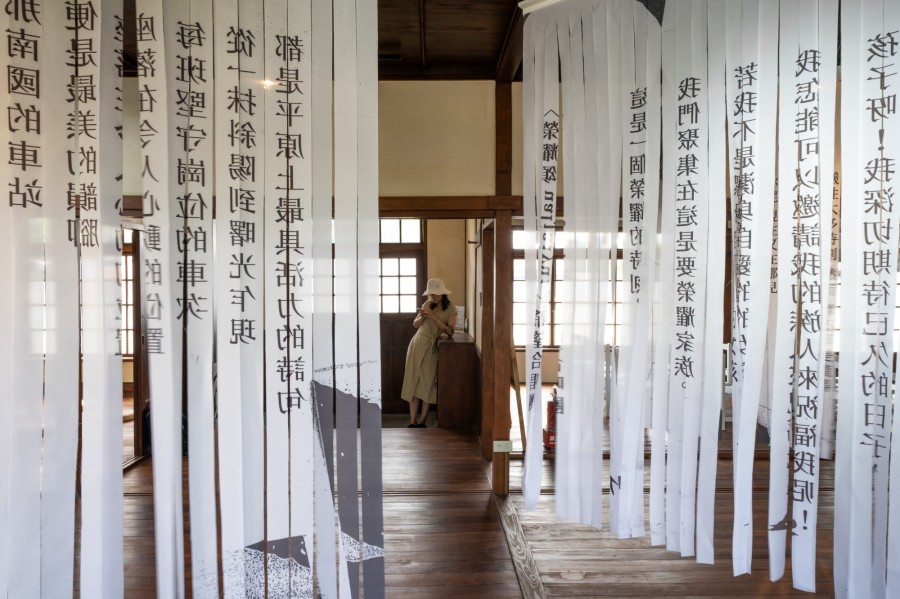 那南國的車站
便是最美的韻腳
座落在令人心動的位置
每班堅守崗位的車次
從一抹斜陽到曙光乍現
都是平原上最具活力的詩句
〈榮耀頌
這是一個榮耀的時刻,
我們聚集在這是要榮耀家族。
若我不是潔身自愛
我怎能可以邀請我的族人來祝福我呢!
孩子呀!我深切期待已久的日子,